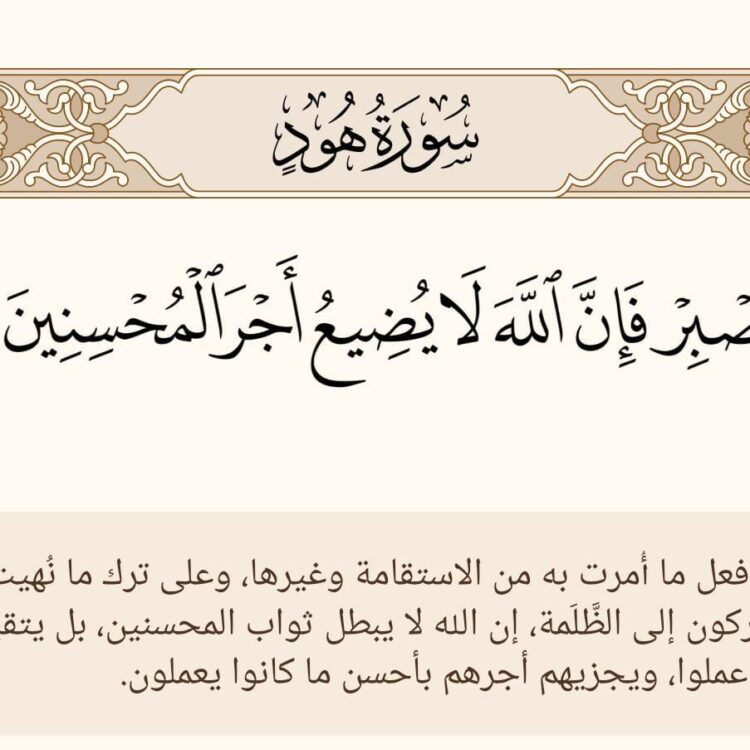 سُورَةُ هُودٍ
صْبِرْ فَإِنَّ ٱللَّهَ لَا يُضِيعُ أَجْرَ ٱلْمُحْسِنِينَ
فعل ما أُمرت به من الاستقامة وغيرها، وعلى ترك ما نُهيت
ركون إلى الظَّلَمة، إن الله لا يبطل ثواب المحسنين، بل يتق
عملوا، ويجزيهم أجرهم بأحسن ما كانوا يعملون.